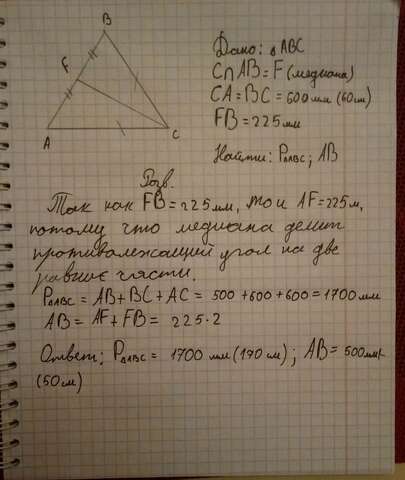 B
F
A
C
Дано: △ABC
C∩AB=F (медиана)
CA=BC=600мм (60см)
FB=225мм
Найти: P△ABC; AB
Розв.
Так как FB=225мм, то и AF=225м,
потому что медиана делит
противолежащий угол на две
равные части.
P△ABC = AB+BC+AC = 500+600+600=1700мм
AB= AF+FB= 225·2
Ответ: P△ABC= 1700 мм(170см); AB=500мм
(50см)